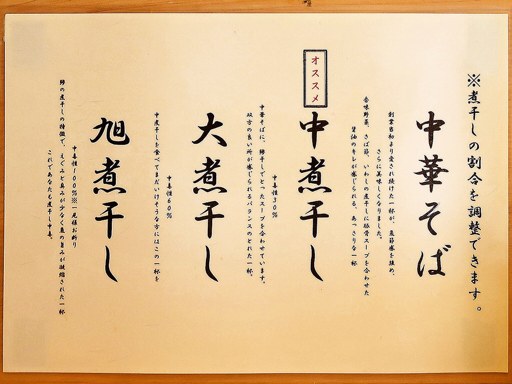 ※煮干しの割合を調整できます。
中華そば
創業当初より愛され続けた一杯が、直球感を強め、
さらに美味しくなりました。
香味野菜、さば節、いわしの煮干しに豚骨スープを合わせた
醤油のキレが感じられる、あっさりな一杯
オススメ
中煮干し
中毒性30%
中華そばに、鰺干しでとったスープを合わせています。
双方の良い所が感じられるバランスのとれた一杯。
大煮干し
中毒性60%
中煮干しを食べてまだいけそうな方にはこの一杯を
旭煮干し
中毒性100%※一見様お断り
鰺の煮干しの特徴で、えぐみと臭みが少なく魚の旨みが凝縮された一杯
これであなたも煮干し中毒。